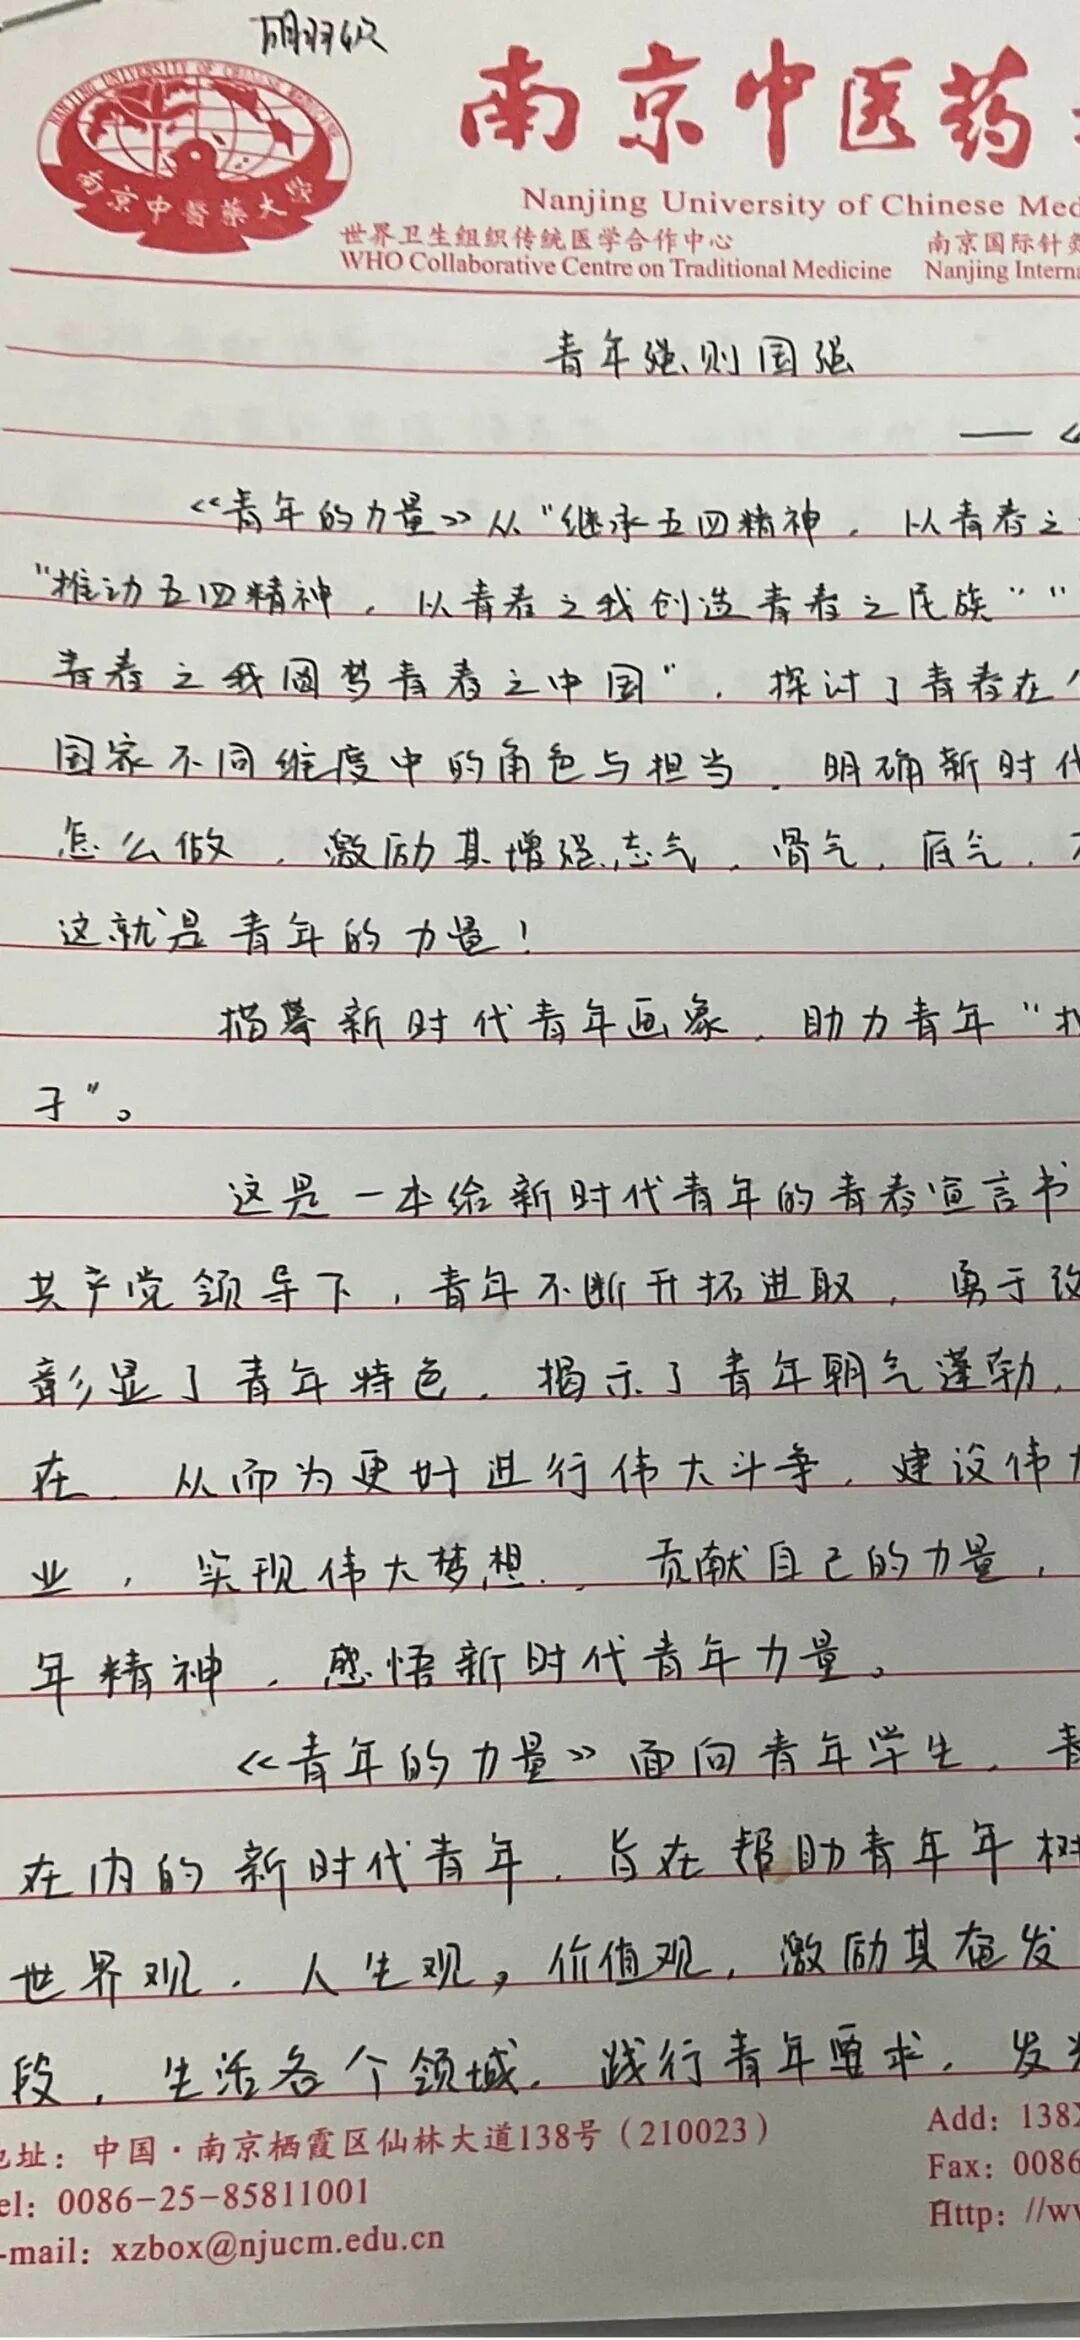 NANJING UNIVERSITY OF CHINESE MEDICINE
南京中醫藥大學
南京中医药
Nanjing University of Chinese Med
世界卫生组织传统医学合作中心 南京国际针灸
WHO Collaborative Centre on Traditional Medicine Nanjing Interna
青年强则国强
——《
《青年的力量》从“继承五四精神，以青春之
“推动五四精神，以青春之我创造青春之民族”“
青春之我圆梦青春之中国”，探讨了青春在个
国家不同维度中的角色与担当，明确新时代
怎么做，激励其增强志气，骨气，底气，不
这就是青年的力量！
描摹新时代青年画象，助力青年“扣
子”。
这是一本给新时代青年的青春宣言书
共产党领导下，青年不断开拓进取，勇于改
彰显了青年特色，揭示了青年朝气蓬勃，
在，从而为更好进行伟大斗争，建设伟大
业，实现伟大梦想，贡献自己的力量，
年精神，感悟新时代青年力量。
《青年的力量》面向青年学生，青
在内的新时代青年，旨在帮助青年年树
世界观，人生观，价值观，激励其奋发
段，生活各个领域，践行青年要求，发
地址：中国·南京栖霞区仙林大道138号（210023） Add: 138X
el: 0086-25-85811001 Fax: 0086
-mail: xzbox@njucm.edu.cn Http: //ww